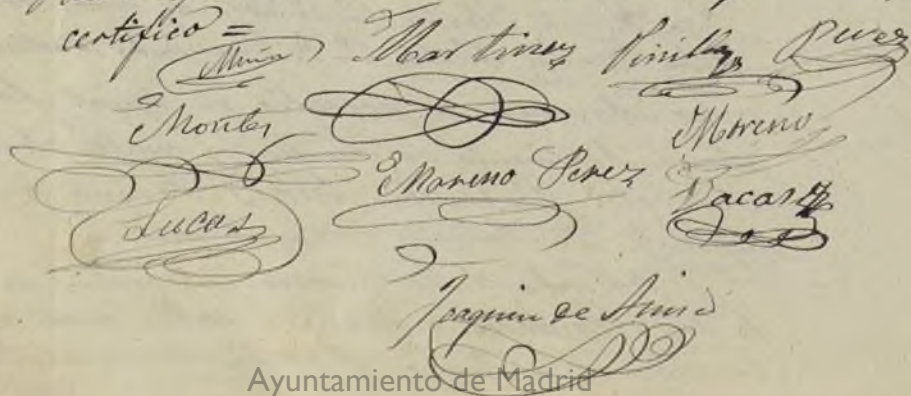 certifico =
Martinez Pinilla Perez
Montes Moreno
Moreno Perez
Lucas Vacas
Joaquin de
Ayuntamiento de Madrid